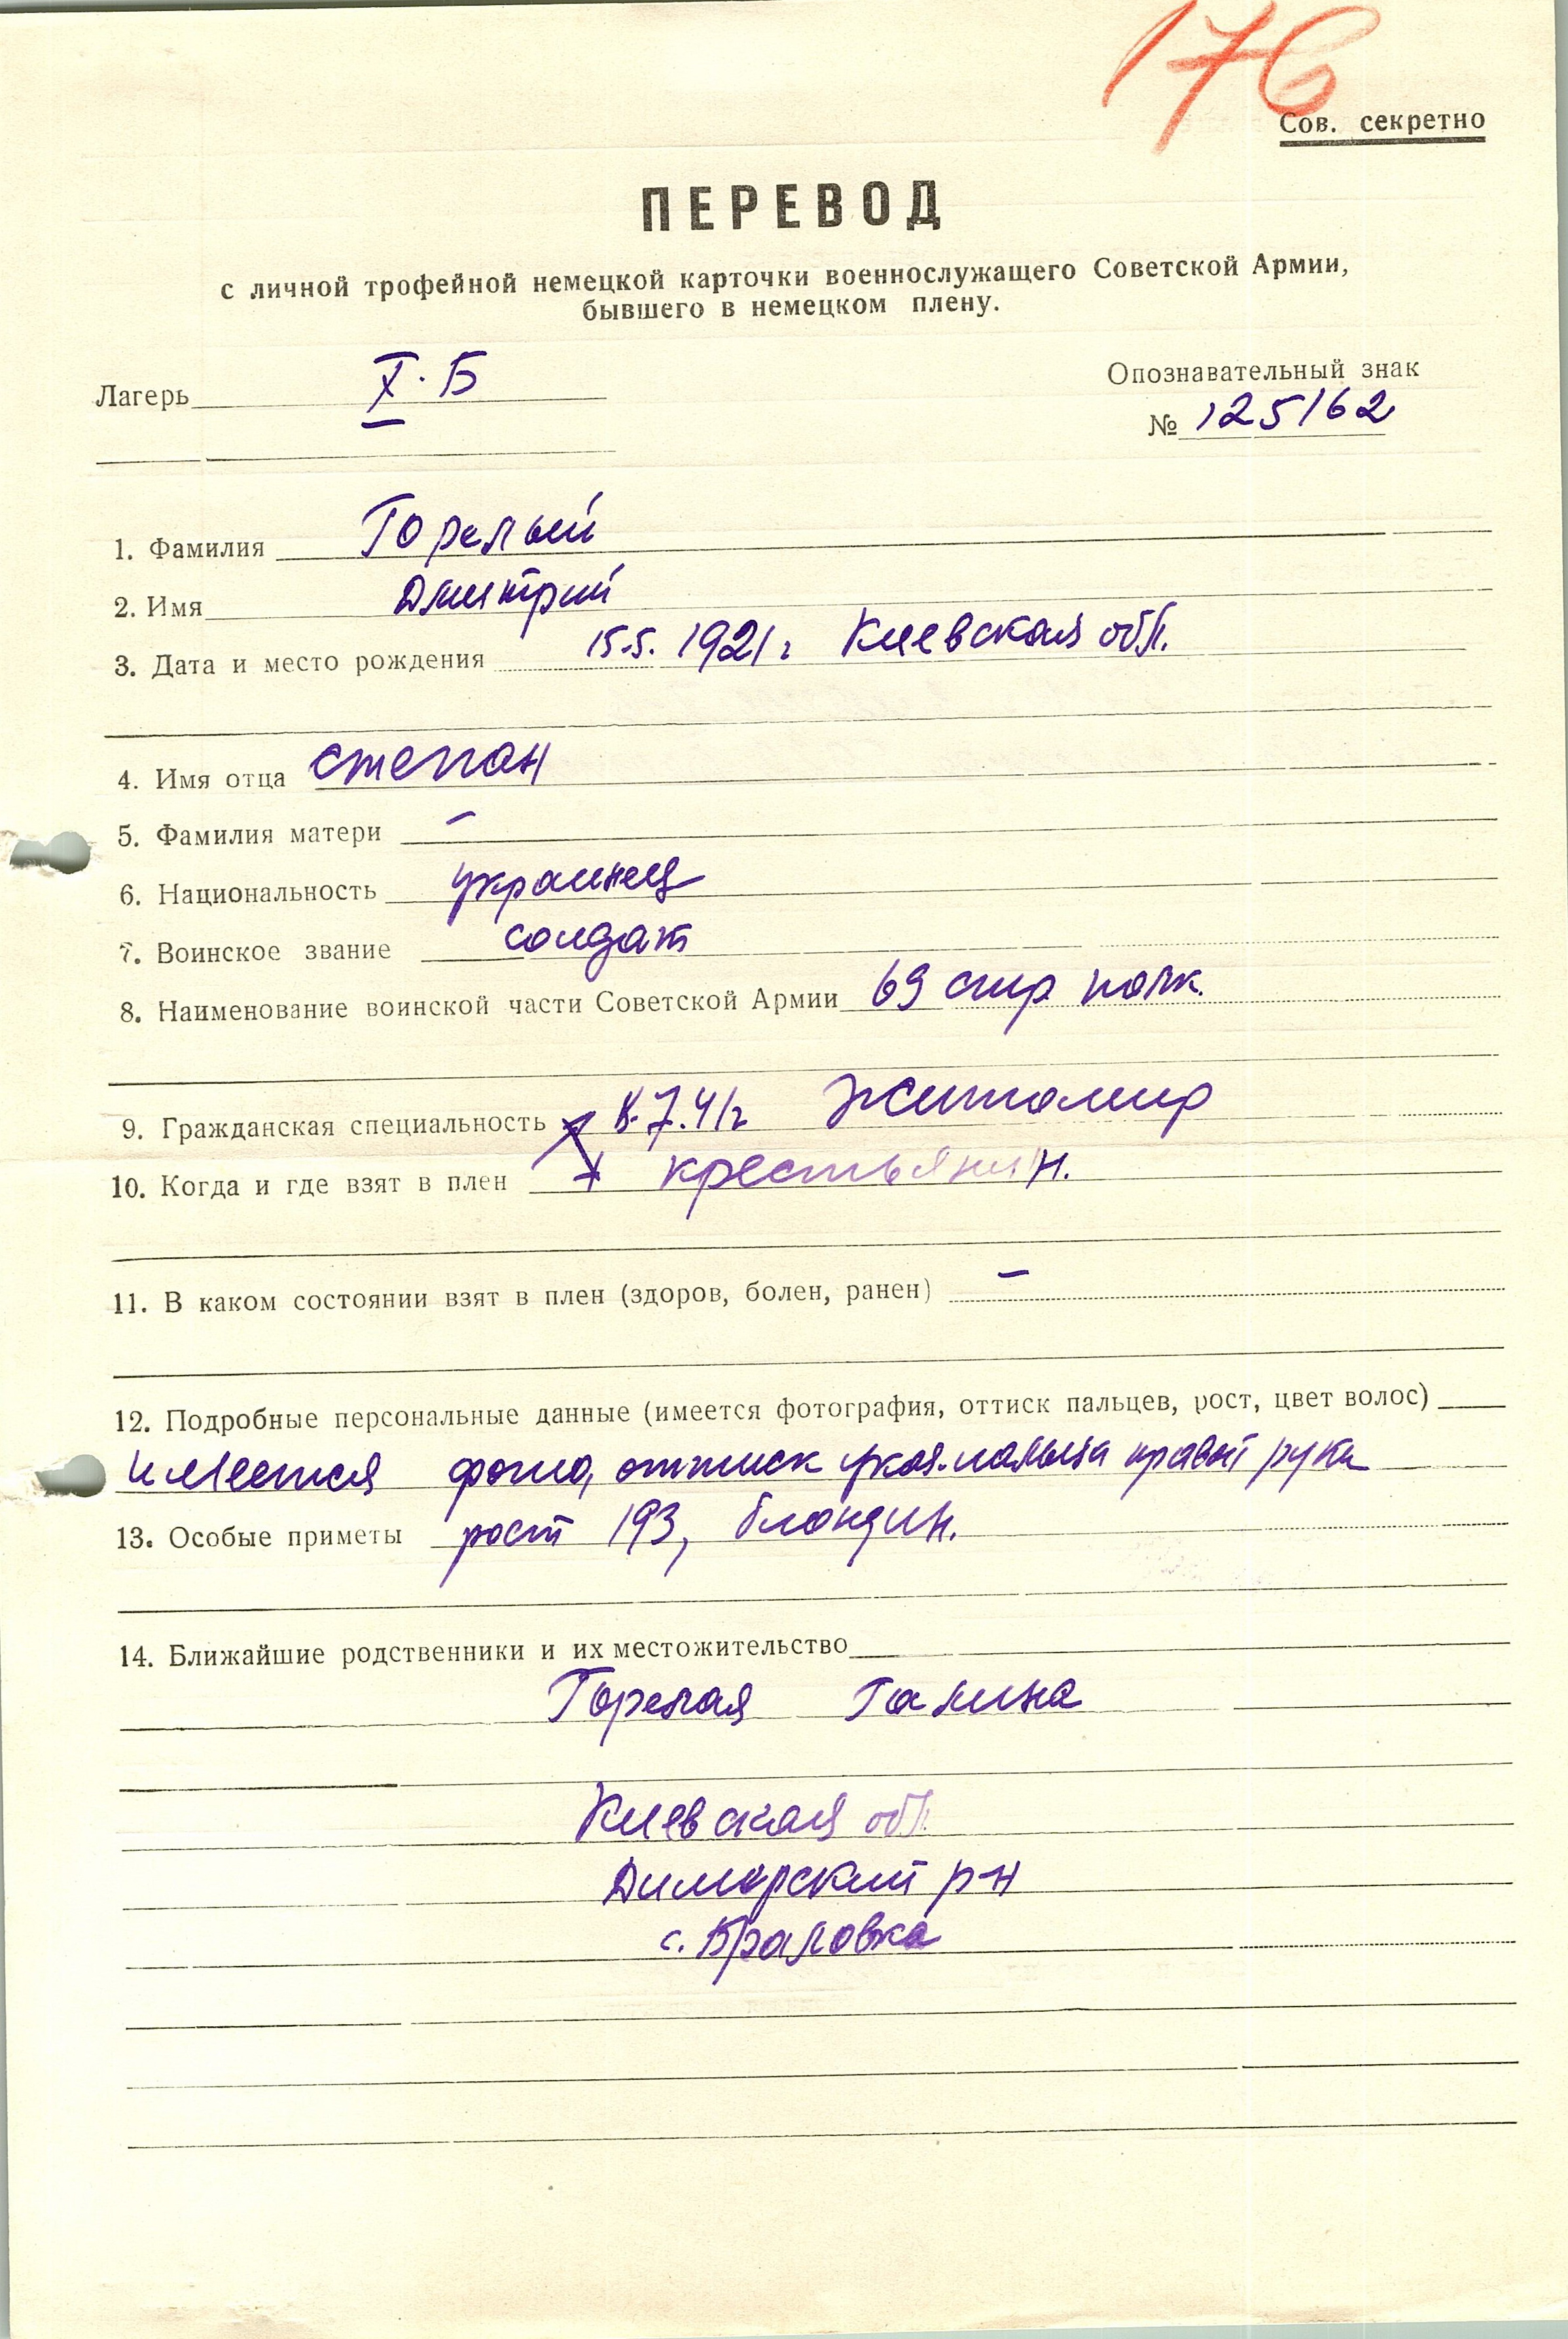 176
Сов. секретно
ПЕРЕВОД
с личной трофейной немецкой карточки военнослужащего Советской Армии,
бывшего в немецком плену.
Лагерь X. Б
Опознавательный знак
№ 125162
1. Фамилия Горелый
2. Имя Дмитрий
3. Дата и место рождения 15.5. 1921 г Киевская обл.
4. Имя отца Степан
5. Фамилия матери –
6. Национальность украинец
7. Воинское звание солдат
8. Наименование воинской части Советской Армии 69 стр. полк.
9. Гражданская специальность 8.7.41г Житомир
10. Когда и где взят в плен крестьянин.
11. В каком состоянии взят в плен (здоров, болен, ранен) –
12. Подробные персональные данные (имеется фотография, оттиск пальцев, рост, цвет волос)
имеется фото, оттиск указ. пальца правой руки
13. Особые приметы рост 193, блондин.
14. Ближайшие родственники и их местожительство
Горелая Галина
Киевская обл.
Димерский р-н
с.